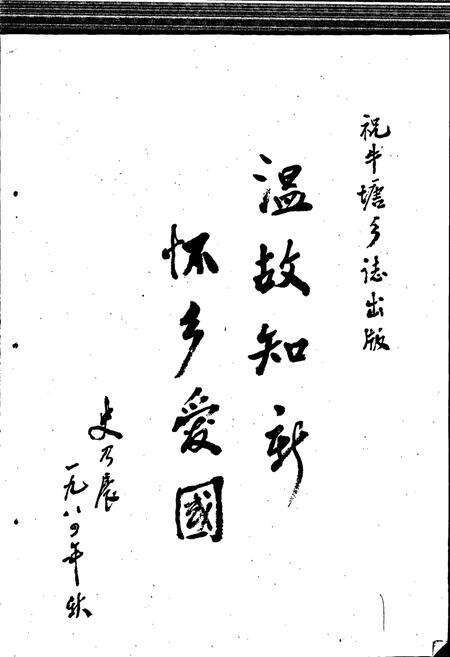 祝牛塘乡誌出版
温故知新
怀乡爱國
史乃展
一九八四年秋